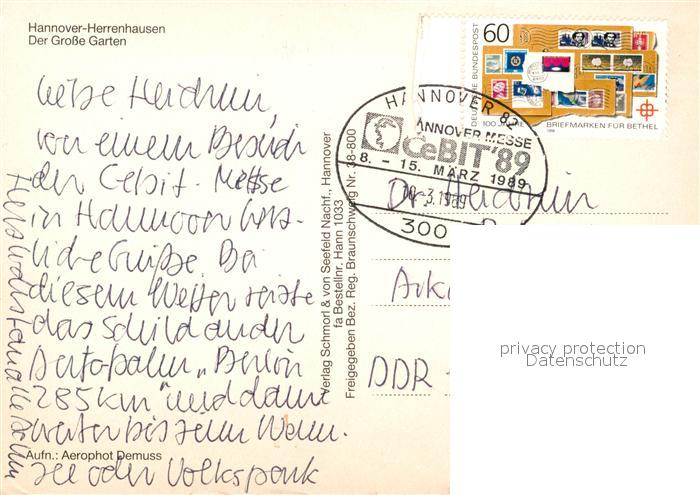 Hannover-Herrenhausen
Der Große Garten
Liebe Heidrun,
von einem Besuch
der Cebit-Messe
in Hannover herz-
liche Grüße. Bei
diesem Wetter reizte
das Schild an der
Autobahn „Berlin
285 km" und dann
weiter bis zum Wann-
see oder Volkspark
Aufn.: Aerophot Demuss
Verlag Schmorl & von Seefeld Nachf., Hannover
fa Bestellnr. Hann 1033
Freigegeben Bez. Reg. Braunschweig Nr. 38-800
60
DEUTSCHE BUNDESPOST
100 JAHRE BRIEFMARKEN FÜR BETHEL
1988
HANNOVER 82
HANNOVER MESSE
CeBIT'89
8. - 15. MÄRZ 1989
-3.1989
300
Dr. Heidrun
DDR
privacy protection
Datenschutz